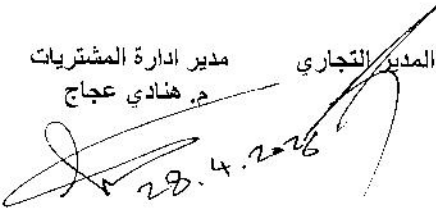 المدير التجاري
مدير ادارة المشتريات
م. هنادي عجاج
28.4.2026